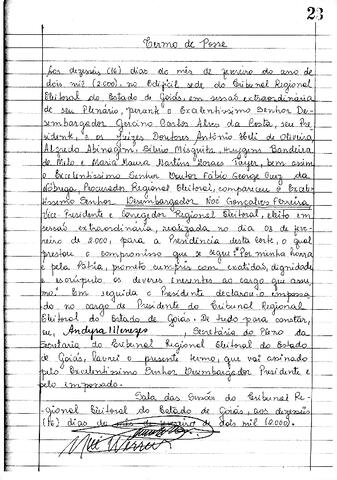 23
Termo de Posse
Aos dezesseis (16) dias do mês de fevereiro do ano de
dois mil (2.000), no Edifício sede do Tribunal Regional
Eleitoral do Estado de Goiás, em sessão extraordinária
de seu Plenário, perante o Excelentíssimo Senhor De-
sembargador Gercino Carlos Alves da Costa, seu Pre-
sidente e os Juízes Doutores Antônio Heli de Oliveira,
Alfredo Abinagem, Silvio Mesquita, Huygens Bandeira
de Melo e Maria Maura Martins Moraes Tayer, bem assim
o Excelentíssimo Senhor Doutor Fábio George Cruz da
Nóbrega, Procurador Regional Eleitoral, compareceu o Excelen-
tíssimo Senhor Desembargador Noé Gonçalves Ferreira,
Vice-Presidente e Corregedor Regional Eleitoral, eleito em
sessão extraordinária, realizada no dia 03 de feve-
reiro de 2.000, para a Presidência desta Corte, o qual
prestou o compromisso que se segue: "Por minha honra
e pela Pátria, prometo cumprir com exatidão, dignidade
e escrúpulo os deveres inerentes ao cargo que assu-
mo". Em seguida o Presidente declarou-o empossa-
do no cargo de Presidente do Tribunal Regional
Eleitoral do Estado de Goiás. De tudo para constar,
eu, Andyra Menezes, Secretária do Pleno da
Secretaria do Tribunal Regional Eleitoral do Estado
de Goiás, lavrei o presente termo, que vai assinado
pelo Excelentíssimo Senhor Desembargador Presidente e
pelo empossado.
Sala das Sessões do Tribunal Re-
gional Eleitoral do Estado de Goiás, aos dezesseis
(16) dias do mês de fevereiro de dois mil (2.000).